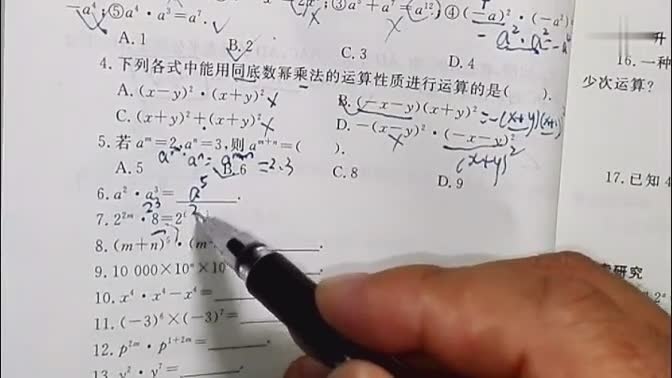 -a⁴;⑤a⁴·a³=a⁷.
③a³+a⁷=a¹²;④(-a)²·(-a²)
a²·a²=-a⁴
A. 1 B. 2 C. 3 D. 4
4. 下列各式中能用同底数幂乘法的运算性质进行运算的是( ).
A. (x-y)²·(x+y)² B. (-x-y)(x+y)² =-(x+y)(x+
C. (x+y)²+(x+y)² D. -(x-y)²·(-x-y)²
(x+y)²
5. 若aᵐ=2,aⁿ=3,则aᵐ⁺ⁿ=( ).
=2·3
A. 5 B. 6 C. 8 D. 9
6. a²·a³= a⁵ .
2³
7. 2²ᵐ·8=2
8. (m+n)⁵·(m
9. 10 000×10ⁿ×10
10. x⁴·x⁴-x⁴=
11. (-3)⁶×(-3)⁷=
12. p²ᵐ·p¹⁺²ᵐ=
13. y²·y⁷=
升
16. 一种
少次运算?
17. 已知4
索研究